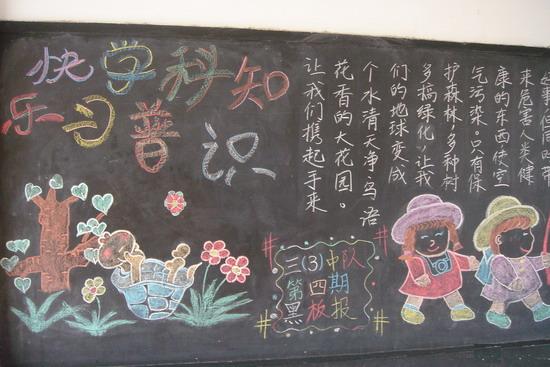 快学科知
乐习普识
来危害人类健
康的东西,使空
气污染。只有保
护森林,多种树
多搞绿化,让我
们的地球变成
个水清天净、鸟语
花香的大花园。
让我们携起手来
三(3)中队
第四期
黑板报